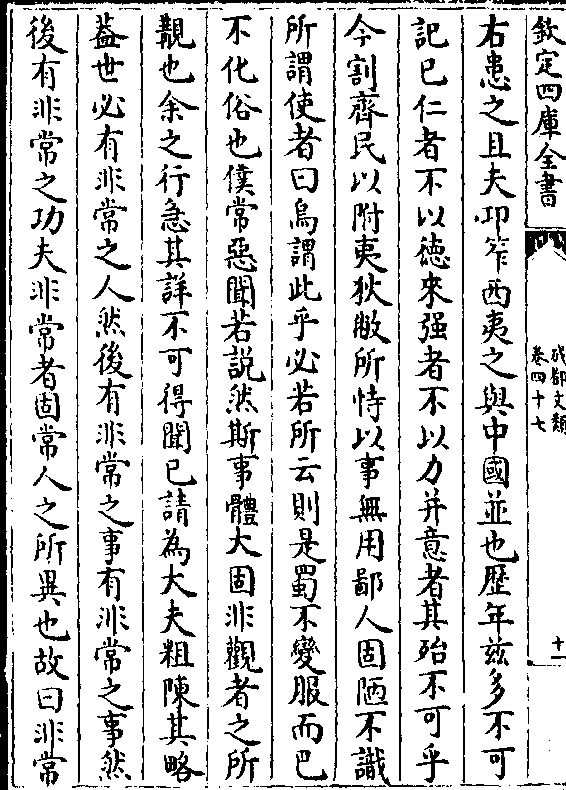 欽定四庫全書
成都文類
卷四十七
十一
右患之且夫卭笮西夷之與中國並也歴年兹多不可
記已仁者不以徳來强者不以力并意者其殆不可乎
今割齊民以附夷狄敝所恃以事無用鄙人固陋不識
所謂使者曰烏謂此乎必若所云則是蜀不變服而巴
不化俗也僕常惡聞若説然斯事體大固非觀者之所
覯也余之行急其詳不可得聞已請為大夫粗陳其略
葢世必有非常之人然後有非常之事有非常之事然
後有非常之功夫非常者固常人之所異也故曰非常